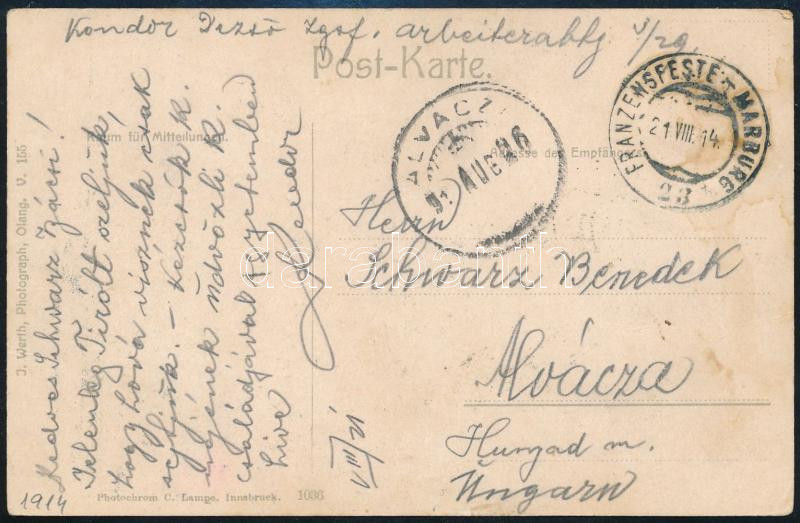 Kondor Dezső Zgsf. Arbeiterabtg 3/29.
Post-Karte.
Raum für Mitteilungen.
Adresse des Empfängers.
FRANZENSFESTE - MARBURG
21 VIII. 14.
23
ALVÁCZA
914 AUG 26
Kedves Schwarz Bácsi!
Jelenleg Tirólt szeljük,
hogy hová visznek csak
sejtjük. - Kezcsók k.
nejének üdvözli k.
családjával egyetemben
híve
Kondor
VIII/21
Herrn
Schwarz Benedek
Alvácza
Hunyad m.
Ungarn
1914
J. Werth, Photograph, Olang. V. 155
Photochrom C. Lampe, Innsbruck. 1036
darabanth